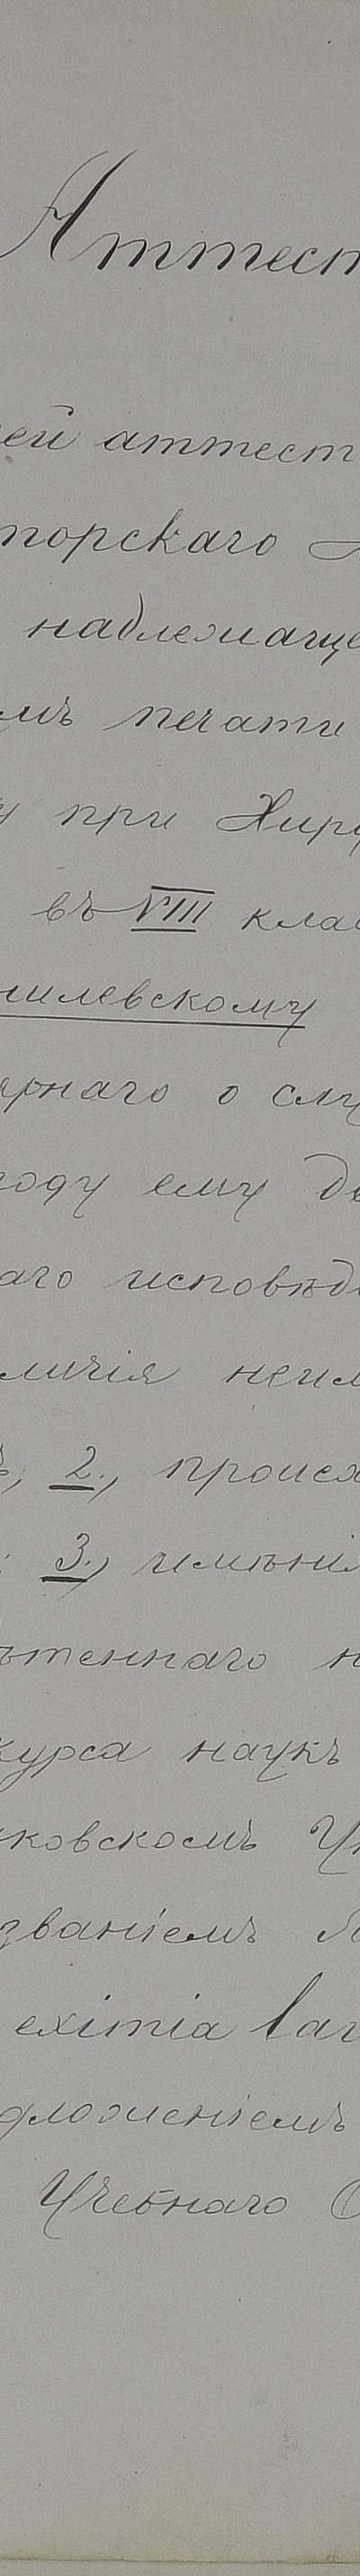 Аттест
сей аттест
торскаго
надлежаще
мъ печати
при Хиру
въ VIII клас
нилевскому
ярнаго о слу
году ему дв
аго исповѣда
личія неим
2., происх
3., имѣнія
ѣтеннаго н
курса наукъ
ковскомъ Ун
званіемъ
eximia lau
дложеніемъ
Учебнаго О